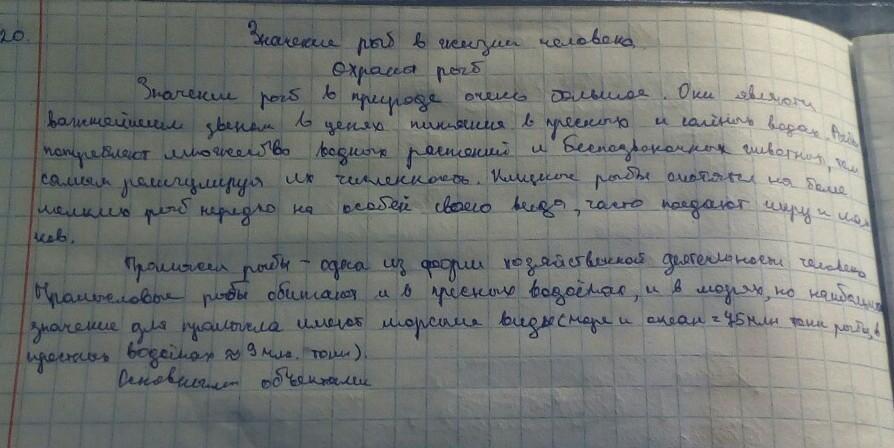 20.
Значение рыб в жизни человека
Охрана рыб
Значение рыб в природе очень большое. Они являются
важнейшим звеном в цепях питания в пресных и солёных водах. Рыбы
потребляют множество водных растений и беспозвоночных животных, тем
самым регулируя их численность. Хищные рыбы охотятся на более
мелких рыб нередко на особей своего вида, часто поедают икру и маль
ков.
Промысел рыбы - одна из форм хозяйственной деятельности человека
Промысловые рыбы обитают и в пресных водоёмах, и в морях, но наибольшее
значение для промысла имеют морские виды (моря и океан ≈ 75 млн тонн рыбы, в
пресных водоёмах ≈ 9 млн. тонн).
Основными объектами